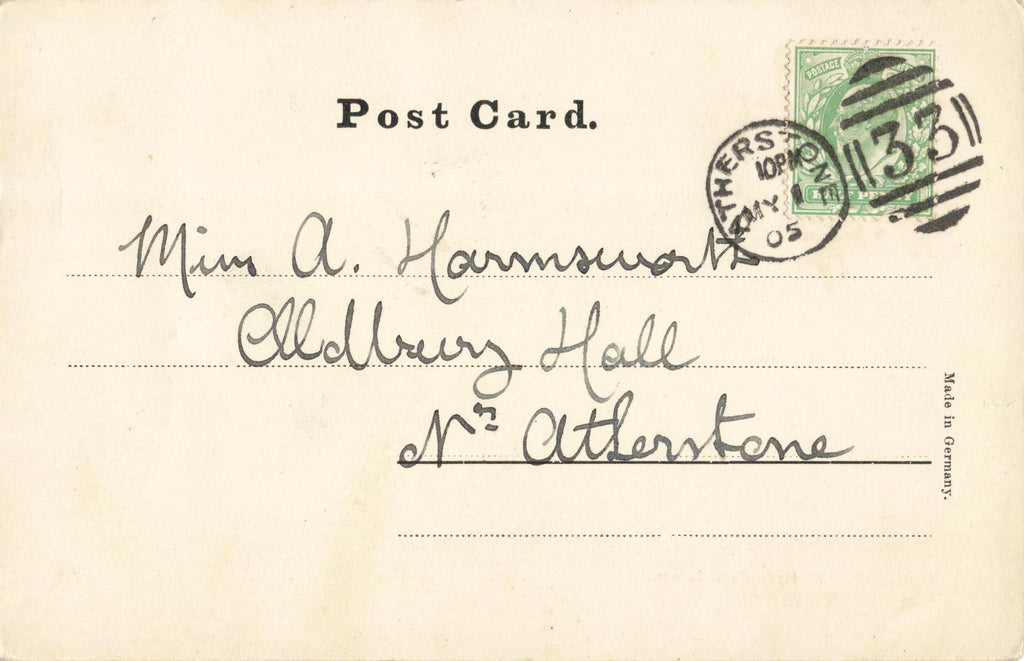 Post Card.
POSTAGE
ATHERSTONE
10PM
MY 1
05
33
Miss A. Harmsworth
Oldbury Hall
Nr Atherstone
Made in Germany.